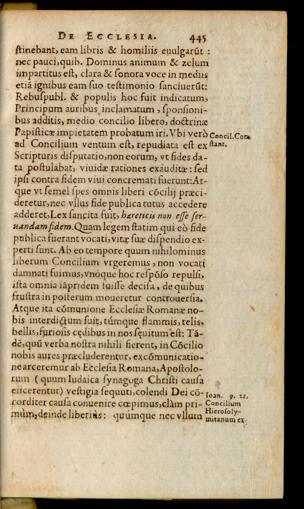 DE ECCLESIA. 445
stinebant, eam libris & homiliis euulgarũt :
nec pauci, quib. Dominus animum & zelum
impartitus est, clara & sonora voce in mediis
etiã ignibus eam suo testimonio sanciuerũt:
Rebuspubl. & populis hoc fuit indicatum,
Principum auribus inclamatum, sponsioni-
bus additis, medio concilio libero, doctrinæ
Papisticæ impietatem probatum iri. Vbi verò
ad Concilium ventum est, repudiata est ex
Scripturis disputatio, non eorum, vt fides da-
ta postulabat, viuidæ rationes exauditæ: sed
ipsi contra fidem viui concremati fuerunt: At-
que vt semel spes omnis liberi cõcilij præci-
deretur, nec vllus fide publica tutus accedere
adderet, Lex sancita fuit, hæreticis non esse ser-
uandam fidem. Quam legem statim qui eò fide
publica fuerant vocati, vitæ suæ dispendio ex-
perti sunt. Ab eo tempore quum nihilominus
liberum Concilium vrgeremus, non vocati
damnati fuimus, vnóque hoc respõso repulsi,
ista omnia iãpridem fuisse decisa, de quibus
frustra in posterum moueretur controuersia.
Atque ita cõmunione Ecclesiæ Romanæ no-
bis interdictum fuit, túmque flammis, telis,
bellis, furiosis cędibus in nos sęuitum est: Tã-
dé, quũ verba nostra nihili fierent, in Cõcilio
nobis aures præcluderentur, excõmunicatio-
ne arceremur ab Ecclesia Romana, Apostolo-
rum ( quum Iudaica synagoga Christi causa
eiicerentur) vestigia sequuti, colendi Dei cõ-
corditer causa conuenire cœpimus, clàm pri-
mùm, deinde liberiùs: quúmque nec vllum
Concil. Con
stanc.
Ioan. 9. 22.
Concilium
Hierosoly-
mitanum ex